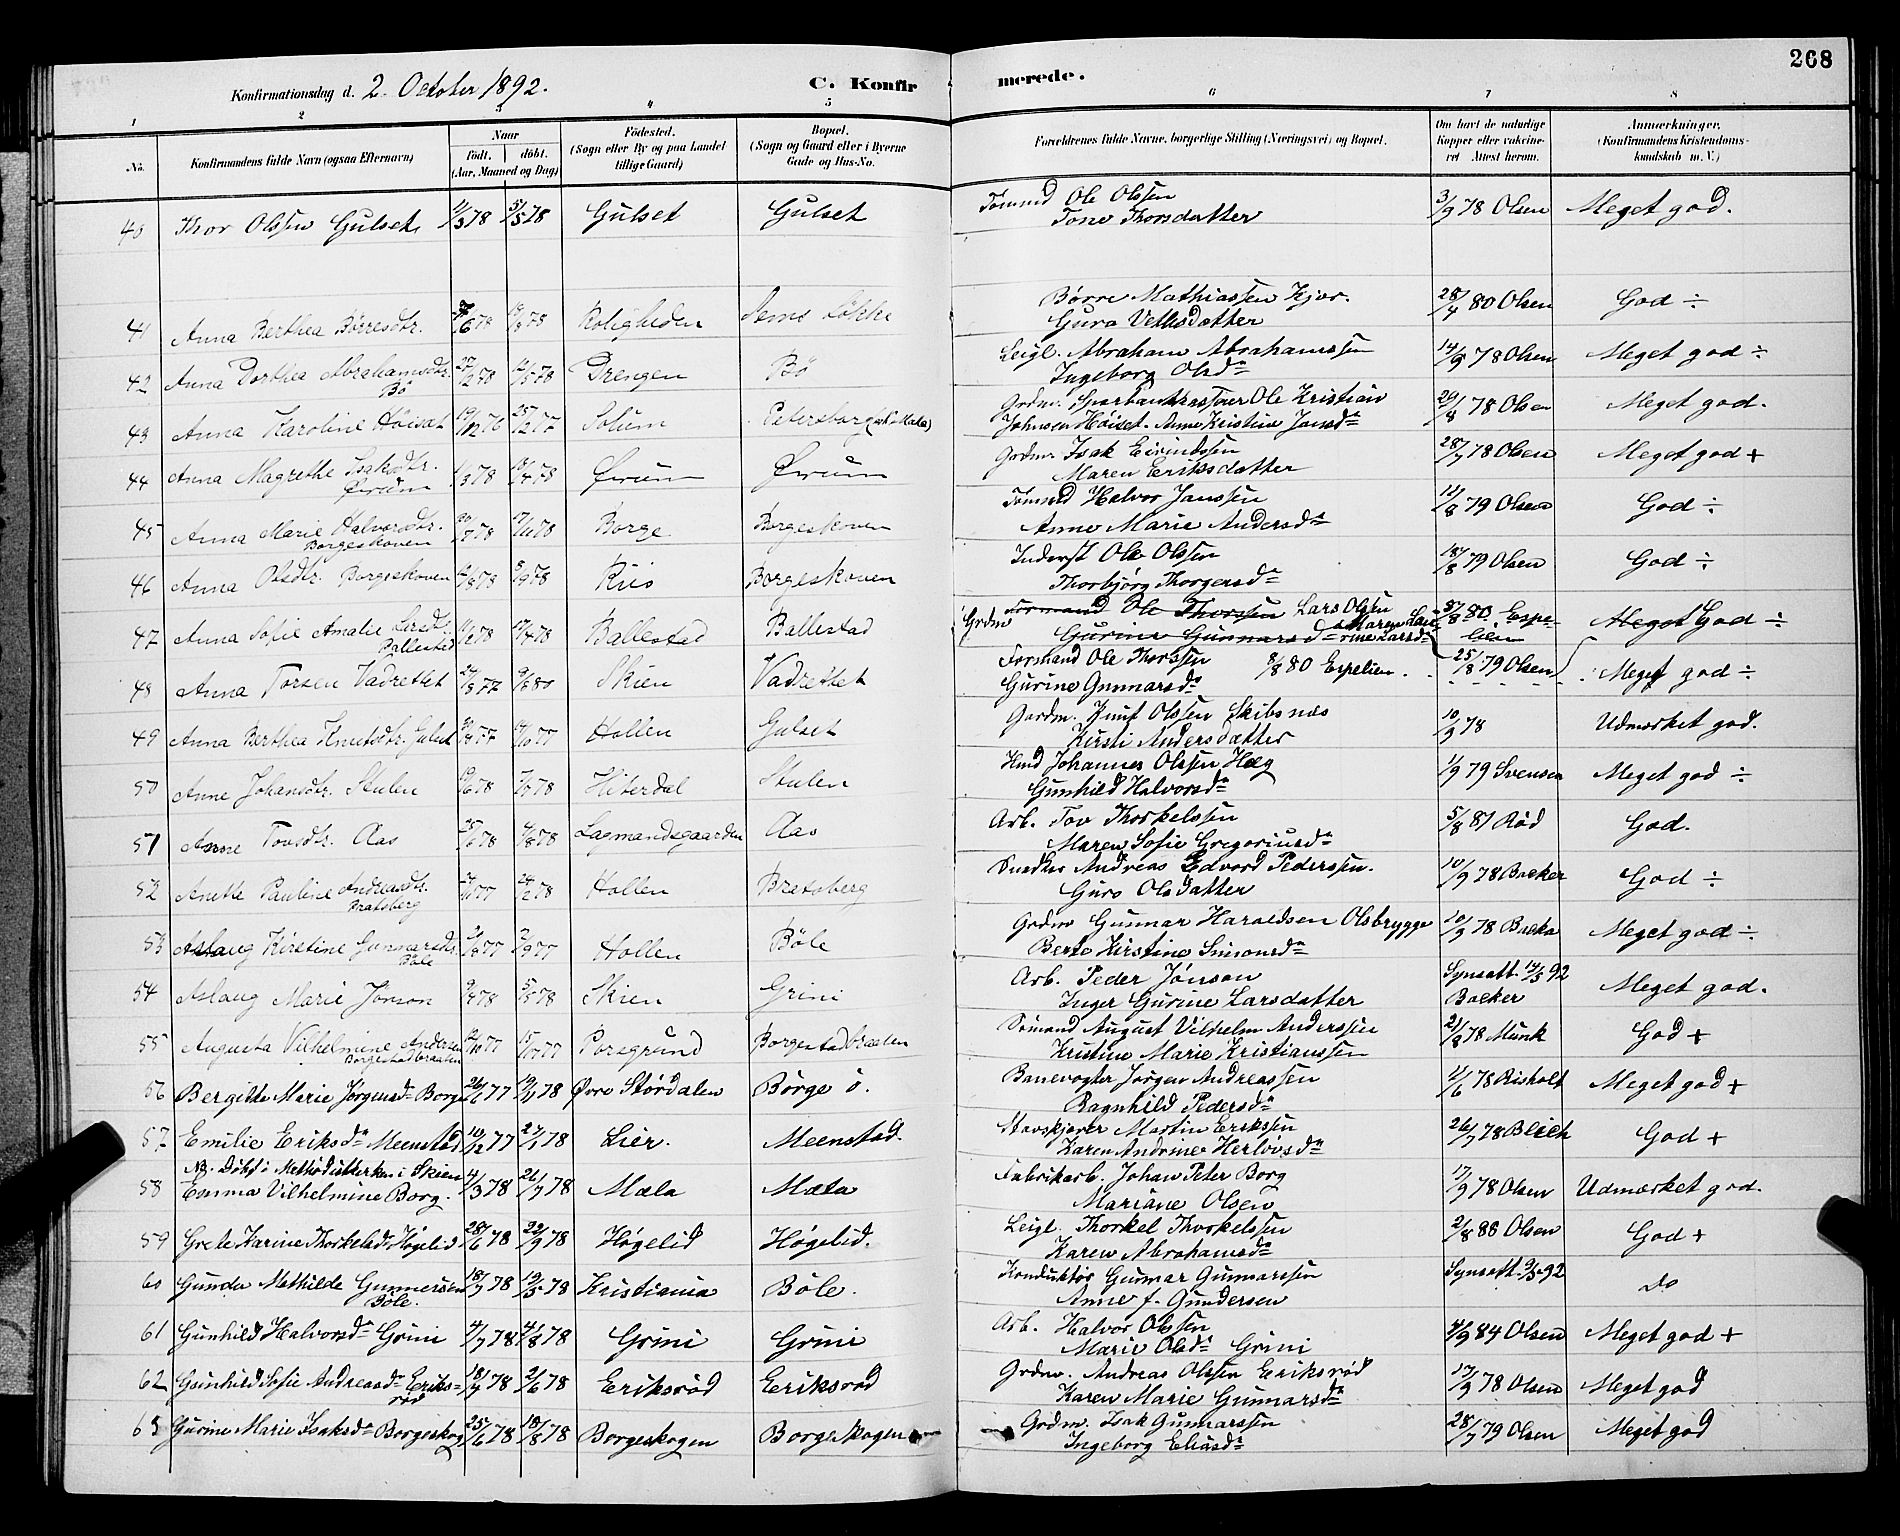 268
Konfirmationsdag d. 2. October 1892.
C. Konfirmerede.
1 2 3 4 5 6 7 8
No.
Konfirmandens fulde Navn (ogsaa Efternavn)
Naar
födt. döbt.
(Aar, Maaned og Dag)
Födested.
(Sogn eller By og paa Landet
tillige Gaard)
Bopæl.
(Sogn og Gaard eller i Byerne
Gade og Hus-No.
Forældrenes fulde Navne, borgerlige Stilling (Næringsvei) og Bopæl.
Om havt de naturlige
Kopper eller vaccineret
Attest herom.
Anmærkninger.
(Konfirmandens Kristendomskundskab
m. V.)
40 Thor Olssen Gulset 11/3 78 5/5 78 Gulset Gulset Tømmd Ole Olssen
Tone Thorsdatter 3/9 78 Olsen Meget god.
41 Anna Berthea Börresdtr. Roligheden Sems Løkke Børre Mathiassen Kjær.
Guro Vetlesdatter 28/4 80 Olsen God ÷
42 Anna Dorthea Abrahamsdtr.
Bö 27/2 78 12/5 78 Drengen Bö Leigl. Abraham Abrahamssen
Ingeborg Olsdr 14/9 78 Olsen Meget god ÷
43 Anna Karoline Høiset 19/12 76 25/2 77 Solum Petersborg Grdm. Sparbankkasserer Ole Kristian
Johnsen Høiset. Anne Kristine Jonsdr 29/8 78 Olsen Meget god.
44 Anna Magrethe Isaksdtr.
Örum 1/3 78 Örum Örum Grdm. Isak Eivindssen
Maren Eriksdatter 28/7 78 Olsen Meget god +
45 Anna Marie Halvorsdtr.
Borgeskoven Borge Borgeskoven Tømmd Halvor Janssen
Anne Marie Andersdr 12/8 79 Olsen God ÷
46 Anna Olsdtr. Borgeskoven 8/9 78 Riis Borgeskoven Inderst Ole Olssen
Thorbjørg Thorgersdr 18/8 79 Olsen God ÷
47 Anna Sofie Amalie Larsdtr.
Ballestad Ballestad Ballestad Grdm Formand Ole Thorssen Lars Olsen
Gurine Gunnarsdr Maren Laurine Larsdr 80 Espelien Meget God ÷
48 Anna Torsen Vadrettet Skien Vadrettet Formand Ole Thorssen 8/8 80 Espelien.
Gurine Gunnarsdr 25/8 79 Olsen Meget god ÷
49 Anna Berthea Knutsdtr. Gulset Hollen Gulset Gardm. Knut Olssen Skibsnæs
Kirsti Andersdatter 10/9 78 Udmærket god.
50 Anne Johansdtr. Stulen 19/6 78 Hiterdal Stulen Hmd Johannes Olssen Hæg
Gunhild Halvorsdr 1/9 79 Svensen Meget god ÷
51 Anne Tovsdtr. Aas 4/8 78 Lagmandsgaarden Aas Arb. Tov Thorkelssen
Maren Sofie Gregoriusdr 5/8 87 Rød God.
52 Anette Pauline Andreasdtr.
Bratsberg 24/2 78 Hollen Bratsberg Snedker Andreas Edvard Pederssen.
Guro Olsdatter 10/9 78 Backer God ÷
53 Aslaug Kirstine Gunnarsdr
Böle 2/9 77 Hollen Böle Grdm Gunnar Haraldsen Olsbrygge
Berte Kirstine Simonsdr 10/9 78 Backer Meget god ÷
54 Aslaug Marie Jönson 9/4 78 5/5 78 Skien Grini Arb. Peder Jønson
Inger Gurine Larsdatter Synsatt 14/5 92
Backer Meget god.
55 Augusta Vilhelmine Andersen
Borgestadbraaten 12/10 77 Porsgrund Borgestadbraaten Sømand August Vilhelm Anderssen
Kristine Marie Kristianssen 21/8 78 Munk God +
56 Bergitte Marie Jørgensdr Borge 26/6 77 78 Øvre Størdalen Börge ö. Banevogter Jørgen Andreassen
Ragnhild Pedersdr 4/6 78 Risholt Meget god +
57 Emilie Eriksdr Meenstad 10/12 77 27/1 78 Lier. Meenstad. Stavskjører Martin Erikssen
Karen Andrine Herløvsdr 26/7 78 Blich God +
NB. Døbt i Methodistkirken i Skien
58 Emma Vilhelmine Borg. 4/3 78 21/7 78 Mæla Mæla Fabrikarb. Johan Peter Borg
Mariane Olsen 17/9 78 Olsen Udmærket god.
59 Grete Karine Thorkelsdr Høgelid 28/6 78 22/9 78 Høgelid Høgelid. Leigl. Thorkel Thorkelssen
Karen Abrahamsdr 2/8 88 Olsen God +
60 Gunda Mathilde Gunnersen
Böle. 18/7 78 Kristiania Böle. Konduktør Gunnar Gunnarssen
Anne f. Gundersen Synsatt 9/5 92 Do
61 Gunhild Halvorsdr Grini 4/7 78 4/8 78 Grini Grini Arb. Halvor Olssen
Marie Olsdr Grini 4/9 84 Olsen Meget god +
62 Gunhild Sofie Andreasdr Eriksrød 18/4 78 2/6 78 Eriksröd Eriksröd Grdm. Andreas Olssen Eriksrød
Karen Marie Gunnarsdr 17/9 78 Olsen Meget god
63 Gurine Marie Isaksdr Borgeskog 25/6 78 18/8 78 Borgeskogen Borgeskogen Grdm. Isak Gunnarssen
Ingeborg Eliasdr 28/7 79 Olsen Meget god